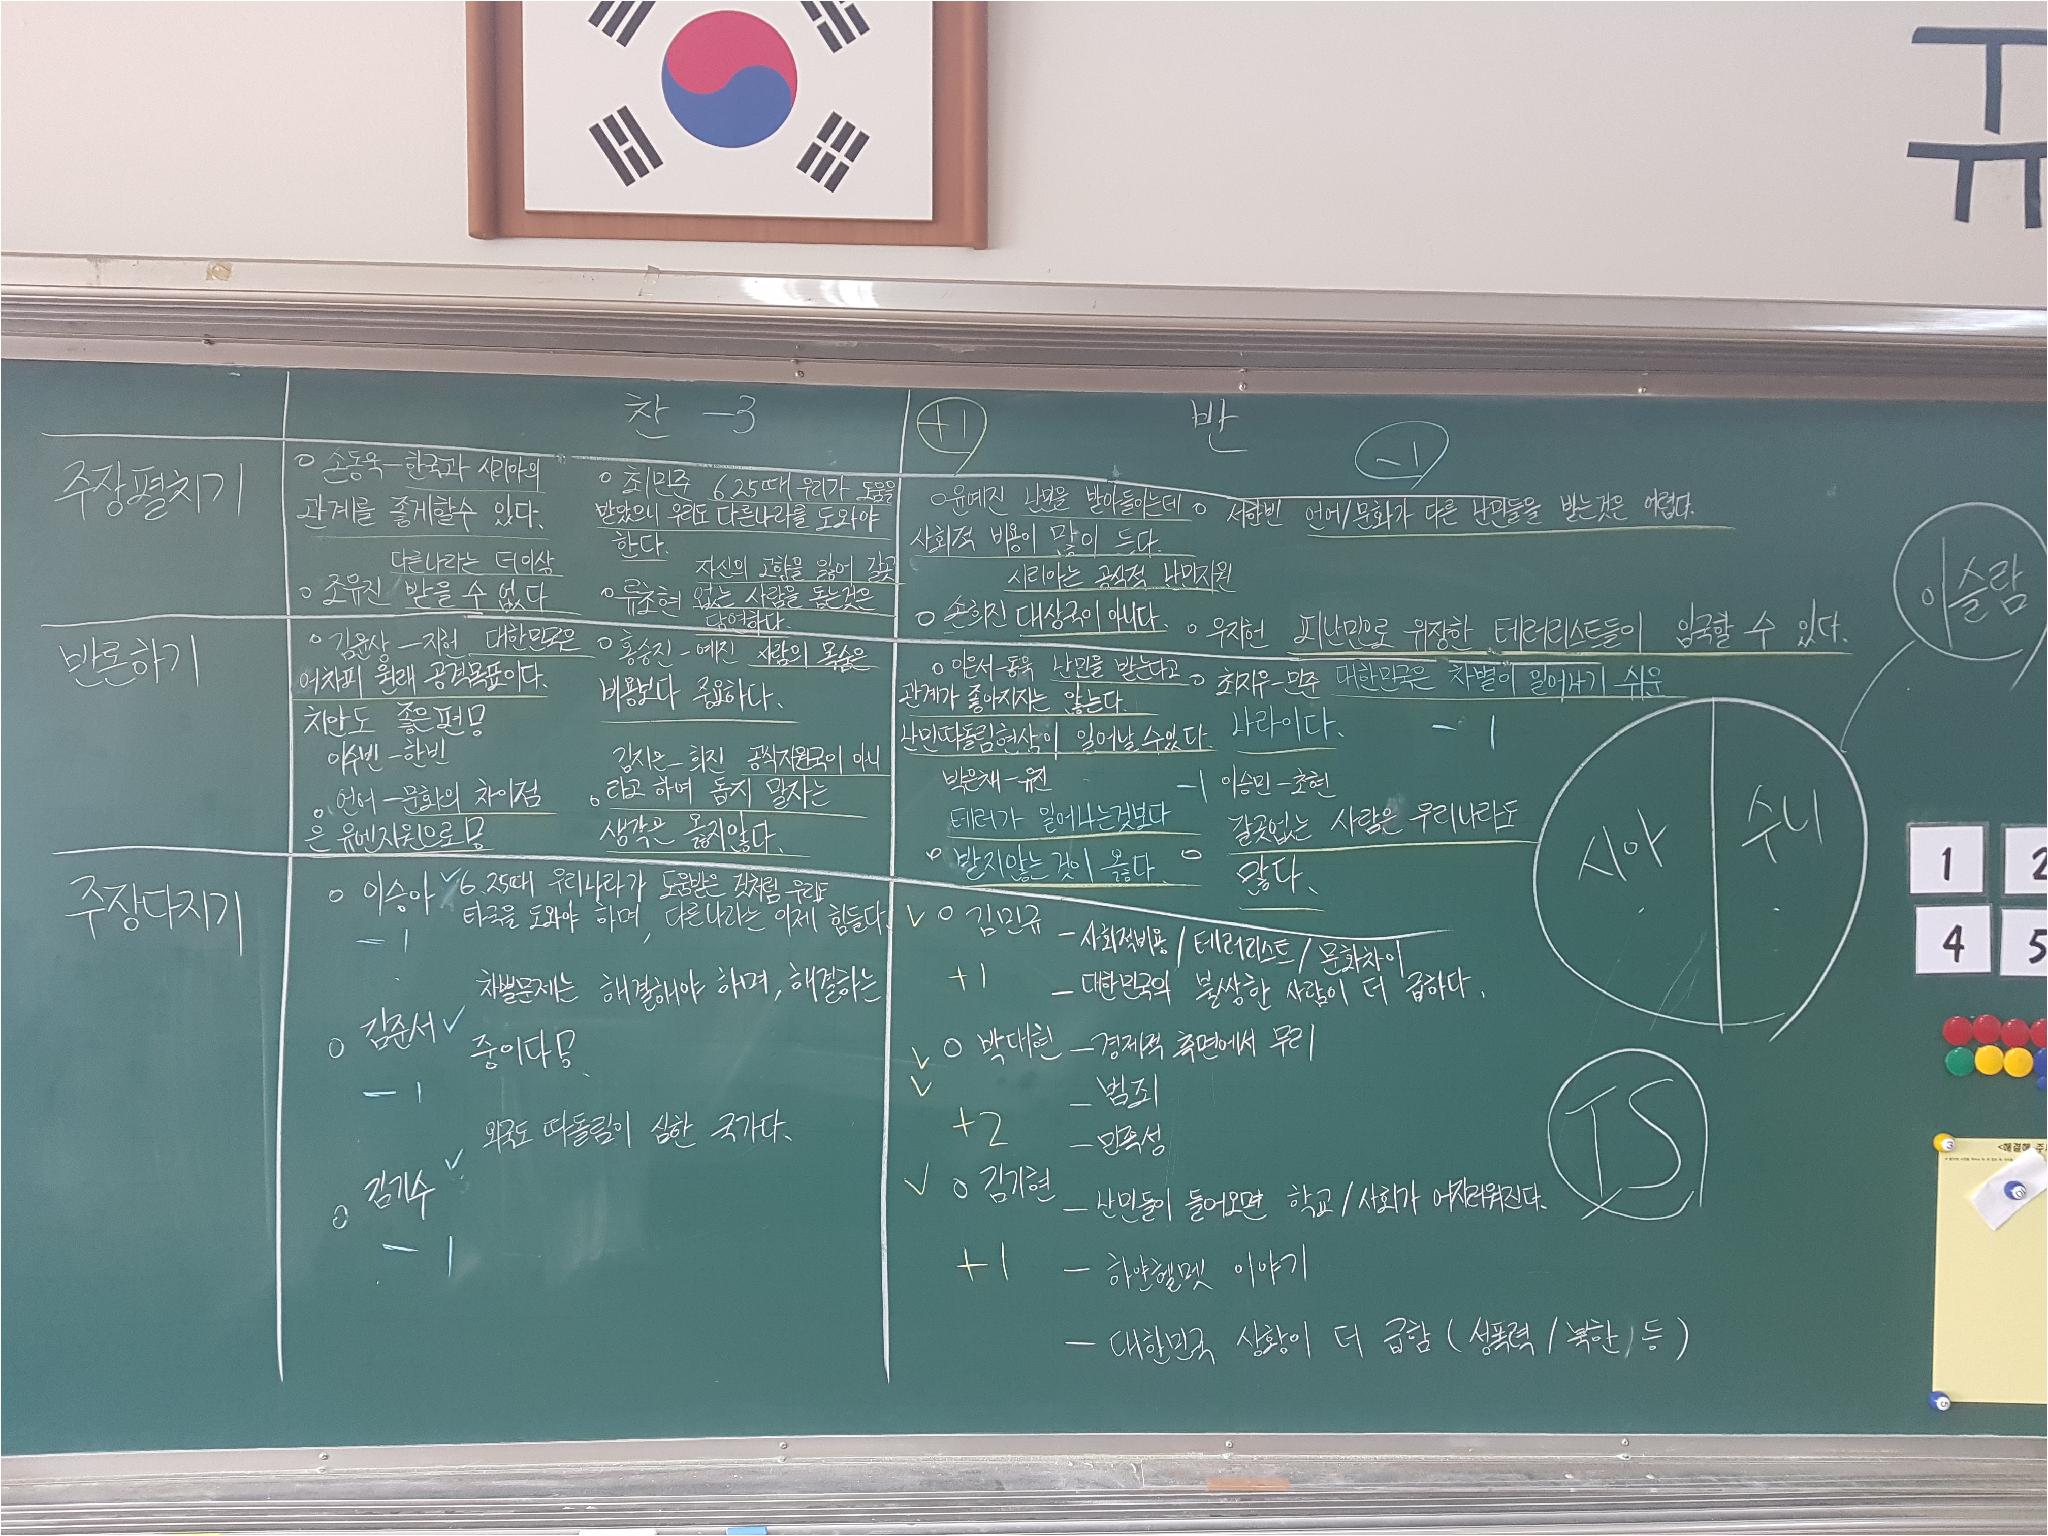 찬 -3
+1
반
-1
주장펼치기
손동욱-한국과 시리아의
관계를 좋게할수 있다.
다른나라는 더이상
조유진 받을 수 없다
최민준 6.25때 우리가 도움을
받았으니 우리도 다른나라를 도와야
한다.
자신의 고향을 잃어 갈곳
류초현 없는 사람을 돕는것은
당연하다.
윤예진 난민을 받아들이는데
사회적 비용이 많이 든다.
시리아는 공식적 난민지원
손희진 대상국이 아니다.
서한빈 언어/문화가 다른 난민들을 받는것은 어렵다.
우지현 난민으로 위장한 테러리스트들이 입국할 수 있다.
반론하기
김윤상-지현 대한민국은
어차피 원래 공격목표이다.
치안도 좋은편!
이수빈-한빈
언어-문화의 차이점
은 유엔지원으로!
홍승진-예진 사람의 목숨은
비용보다 중요하다.
김지은-희진 공식지원국이 아니
라고 하여 돕지 말자는
생각은 옳지않다.
이은서-동욱 난민을 받는다고
관계가 좋아지지는 않는다.
난민따돌림현상이 일어날수있다.
박은재-유진
테러가 일어나는것보다
받지않는 것이 옳다.
최지유-민준 대한민국은 차별이 일어나기 쉬운
나라이다. -1
-1 이승민-초현
갈곳없는 사람은 우리나라도
많다.
주장다지기
이승아 6.25때 우리나라가 도움받은 것처럼 우리도
타국을 도와야 하며, 다른나라는 이제 힘들다.
-1
차별문제는 해결해야 하며, 해결하는
김준서 중이다!
-1
외국도 따돌림이 심한 국가다.
김기수
-1
김민규 -사회적비용/테러리스트/문화차이
+1 -대한민국의 불쌍한 사람이 더 급하다.
박대현 -경제적 측면에서 무리
-범죄
+2 -민족성
김지현 -난민들이 들어오면 학교/사회가 어지러워진다.
+1 -하얀헬멧 이야기
-대한민국 상황이 더 급함(성폭력/북한/등)
이슬람
시아
수니
TS
1
2
4
5